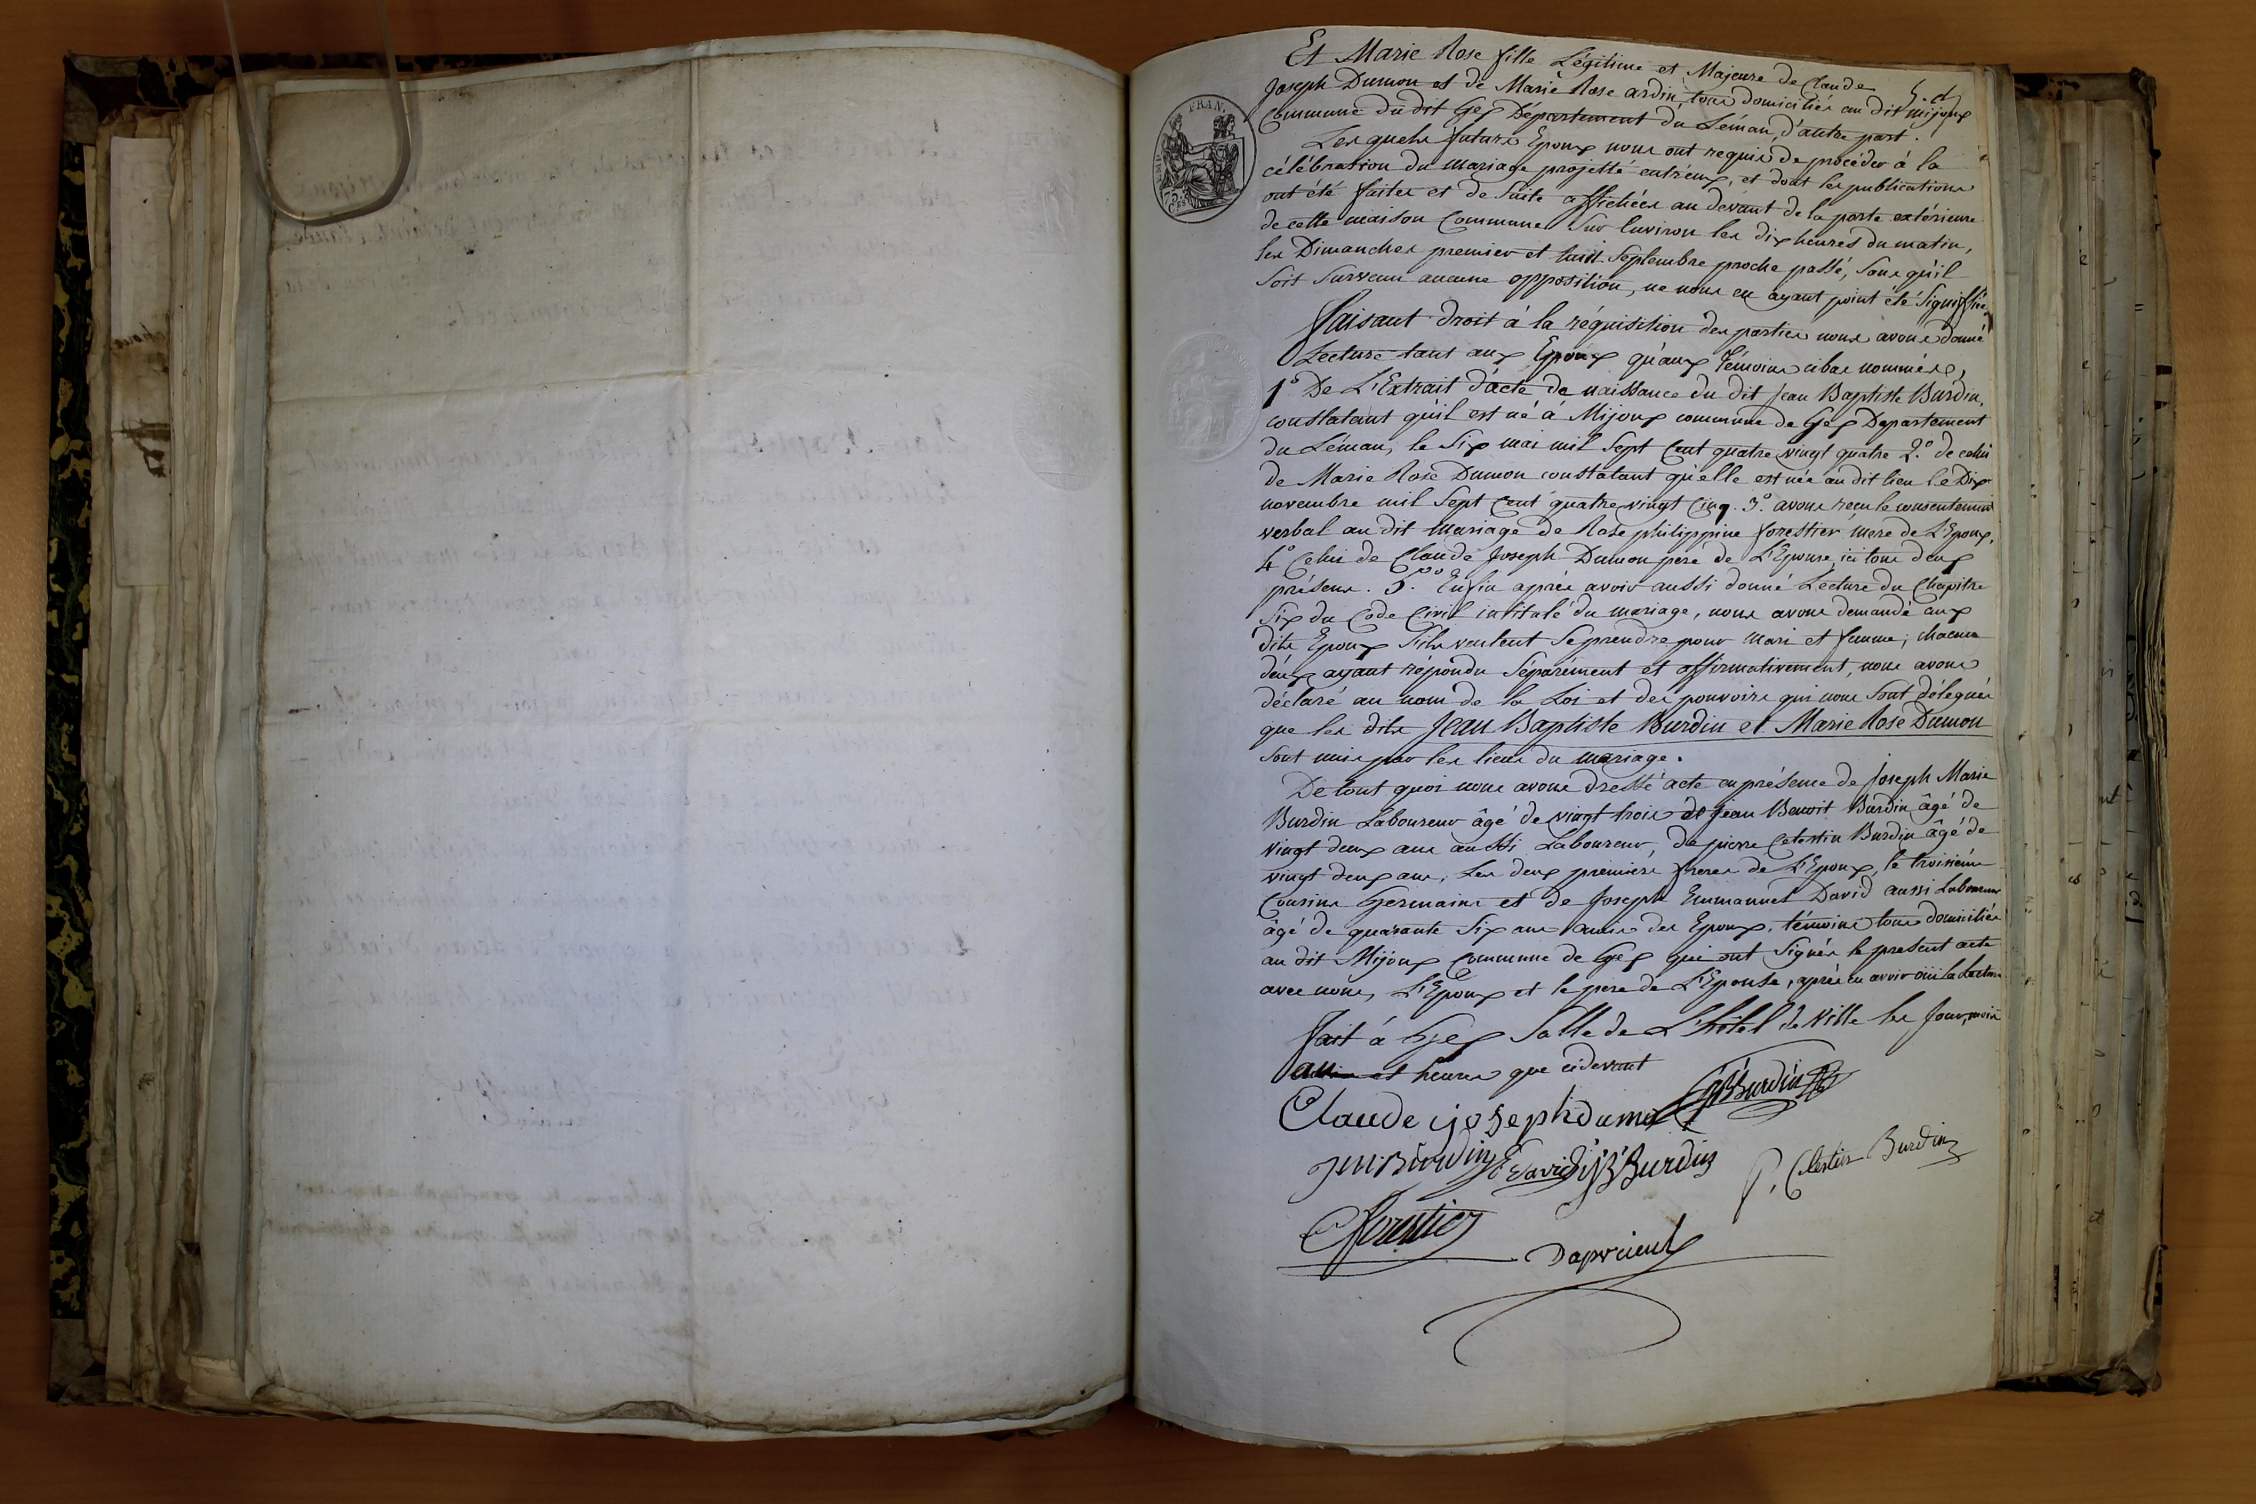 Et Marie Rose fille Légitime et Majeure de Claude
Joseph Dumon et de Marie Rose ardin, tous domiciliés au dit mijoux
Commune du dit Gex Département du Léman, d'autre part.
Lesquels futurs Epoux nous ont requis de procéder à la
célébration du mariage projetté entr'eux, et dont les publications
ont été faites et de suite affichées au devant de la porte extérieure
de cette maison Commune Sur l'environ les dix heures du matin,
les Dimanches premier et huit Septembre proche passé, Sans qu'il
Soit Survenu aucune opposition, ne nous en ayant point été Signiffiée
faisant droit à la réquisition des parties nous avons donné
Lecture tant aux Epoux qu'aux Témoins cibas nommérs,
1.° De L'Extrait d'acte de naissance du dit Jean Baptiste Burdin,
constatant qu'il est né à Mijoux commune de Gex Departement
du Léman, le Six mai mil Sept Cent quatre vingt quatre 2.° de celui
de Marie Rose Dumon constatant qu'elle est née au dit lieu le Dix
novembre mil Sept Cent quatre vingt Cinq. 3.° avons recu le consentement
verbal au dit mariage de Rose philippine forestier mere de L'Epoux,
4.° Celui de Claude Joseph Dumon pere de L'Epouse, ici tous deux
présens. 5.° Enfin après avoir aussi donné Lecture du Chapitre
Six du Code Civil intitulé du mariage, nous avons demandé aux
dits Epoux S'ils veulent Se prendre pour mari et femme; chacun
d'eux ayant répondu Séparément et affirmativement, nous avons
déclaré au nom de la Loi et des pouvoirs qui nous Sont délegués
que les dits Jean Baptiste Burdin et Marie Rose Dumon
Sont unis par les liens du mariage.
De tout quoi nous avons dressé acte en présence de Joseph Marie
Burdin Laboureur âgé de vingt trois de Jean Benoit Burdin âgé de
vingt deux ans aussi Laboureur, de pierre Celestin Burdin âgé de
vingt deux ans, Les deux premiers freres de L'Epoux, le troisiéme
Cousins Germains et de Joseph Emmanuel David aussi Laboureur
âgé de quarante Six ans amis des Epoux, témoins tous domiciliés
au dit Mijoux Commune de Gex qui ont Signés le present acte
avec nous, L'Epoux et le pere de L'Epouse, après en avoir oui la Lecture
fait à Gex Salle de L'hôtel de Ville les Jour, mois
an et heures que cidevant
Claude joseph dumon JBBurdin
JM Burdin JE david JB Burdin P. Celestin Burdin
forestier
Daprcieux